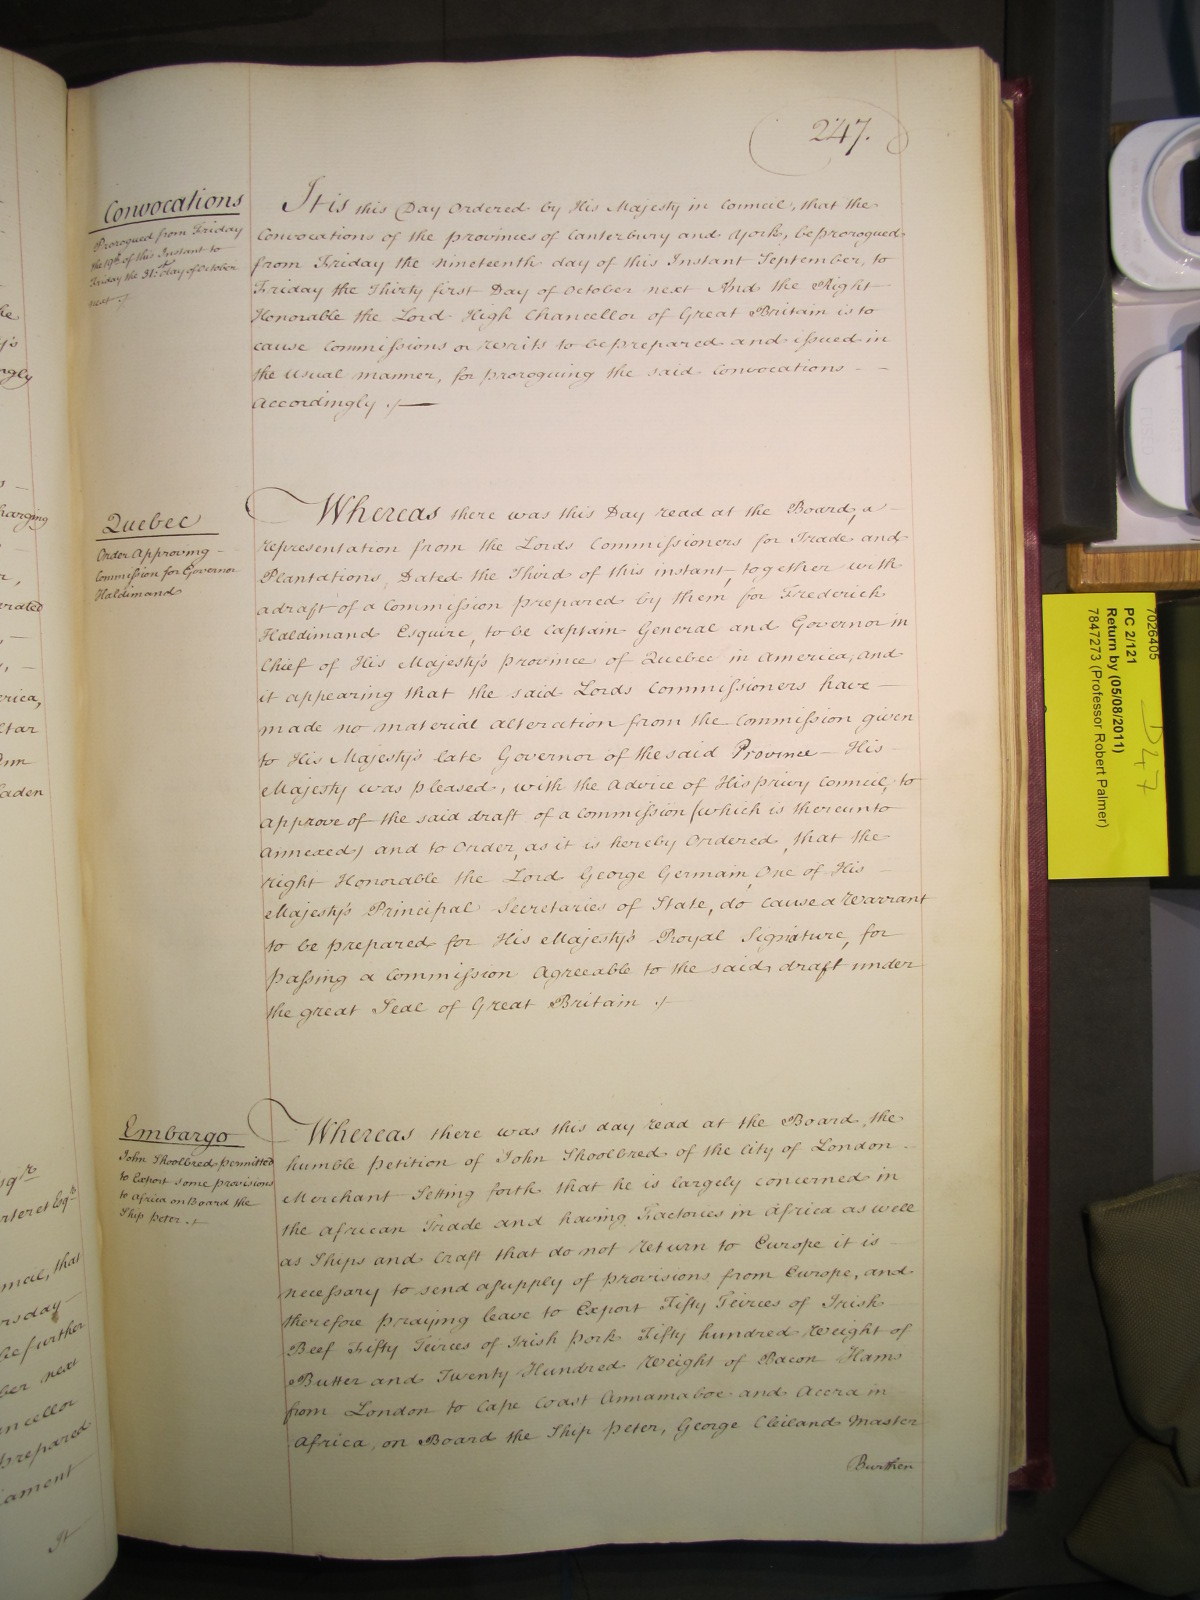 247.
Convocations
Prorogued from Friday
the 19th of this Instant to
Friday the 31st day of October
next
It is this Day Ordered by His Majesty in Council, that the
Convocations of the provinces of Canterbury and York, be prorogued
from Friday the nineteenth day of this Instant September, to
Friday the Thirty first Day of October next And the Right
Honorable the Lord High Chancellor of Great Britain is to
cause Commissions or Writs to be prepared and issued in
the Usual manner, for proroguing the said Convocations
Accordingly
Quebec
Order Approving
Commission for Governor
Haldimand
Whereas there was this Day read at the Board, a
representation from the Lords Commissioners for Trade and
Plantations, Dated the Third of this instant, together with
a draft of a Commission prepared by them for Frederick
Haldimand Esquire, to be Captain General and Governor in
Chief of His Majesty's province of Quebec in America, and
it appearing that the said Lords Commissioners have
made no material alteration from the Commission given
to His Majesty's late Governor of the said Province His
Majesty was pleased, with the Advice of His privy Council, to
approve of the said draft of a Commission (which is thereunto
annexed) and to Order, as it is hereby Ordered, that the
right Honorable the Lord George Germain, One of His
Majesty's Principal Secretaries of State, do cause a Warrant
to be prepared for His Majesty's Royal Signature, for
passing a Commission Agreeable to the said draft under
the great Seal of Great Britain
Embargo
John Shoolbred permitted
to Export some provisions
to Africa on Board the
Ship Peter
Whereas there was this day read at the Board, the
humble petition of John Shoolbred of the City of London
Merchant Setting forth that he is largely concerned in
the African Trade and having Factories in Africa as well
as Ships and Craft that do not return to Europe it is
necessary to send a supply of provisions from Europe, and
therefore praying leave to Export Fifty Teirces of Irish
Beef Fifty Teirces of Irish pork Fifty hundred Weight of
Butter and Twenty Hundred Weight of Bacon Hams
from London to Cape Coast Annamaboe and Accra in
Africa, on Board the Ship Peter, George Cleiland Master
Burthen
ngly
harging
erica,
aden
mcil, that
rsday
be further
ber next
ancellor
prepared
iament
It
7026405
PC 2/121
Return by (05/08/2011)
7847273 (Professor Robert Palmer)
D47